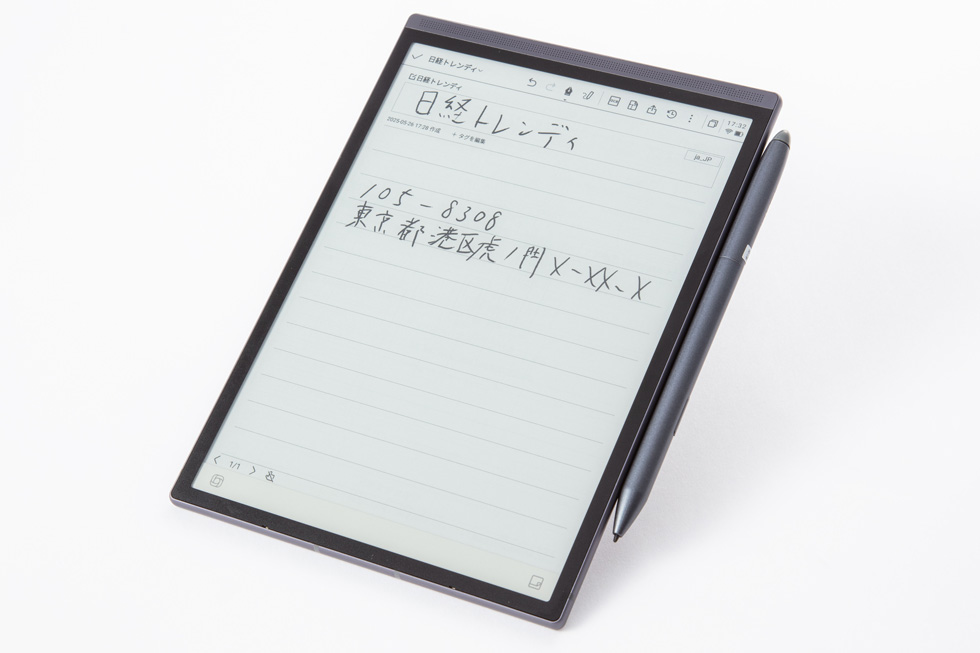 日経トレンディ
17:32
日経トレンディ
日経トレンディ
2025-05-26 17:28 作成 + タグを編集
ja_JP
105-8308
東京都港区虎ノ門X-XX、X
1/1